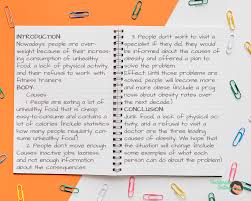 INTRODUCTION:
Nowadays, people are over-
weight because of their increas-
ing consumption of unhealthy
food, a lack of physical activity,
and their refusal to work with
fitness trainers.
BODY:
Causes
1. People are eating a lot of
unhealthy food that is cheap,
easy-to-consume and contains a
lot of calories (include statistics
how many people regularly con-
sume unhealthy food)
2. People don't move enough
Causes: inactive jobs, laziness,
and not enough information
about the consequences
3. People don't want to visit a
specialist. If they did, they would
be informed about the causes of
obesity and offered a plan to
solve the problem
Effect: Until those problems are
solved, people will become more
and more obese (include a prog
nosis about obesity rates over
the next decade)
CONCLUSION:
Junk food, a lack of physical ac-
tivity, and a refusal to visit a
doctor are the three leading
causes of obesity. We hope that
the situation will change (include
some examples of what each
person can do about the problem)